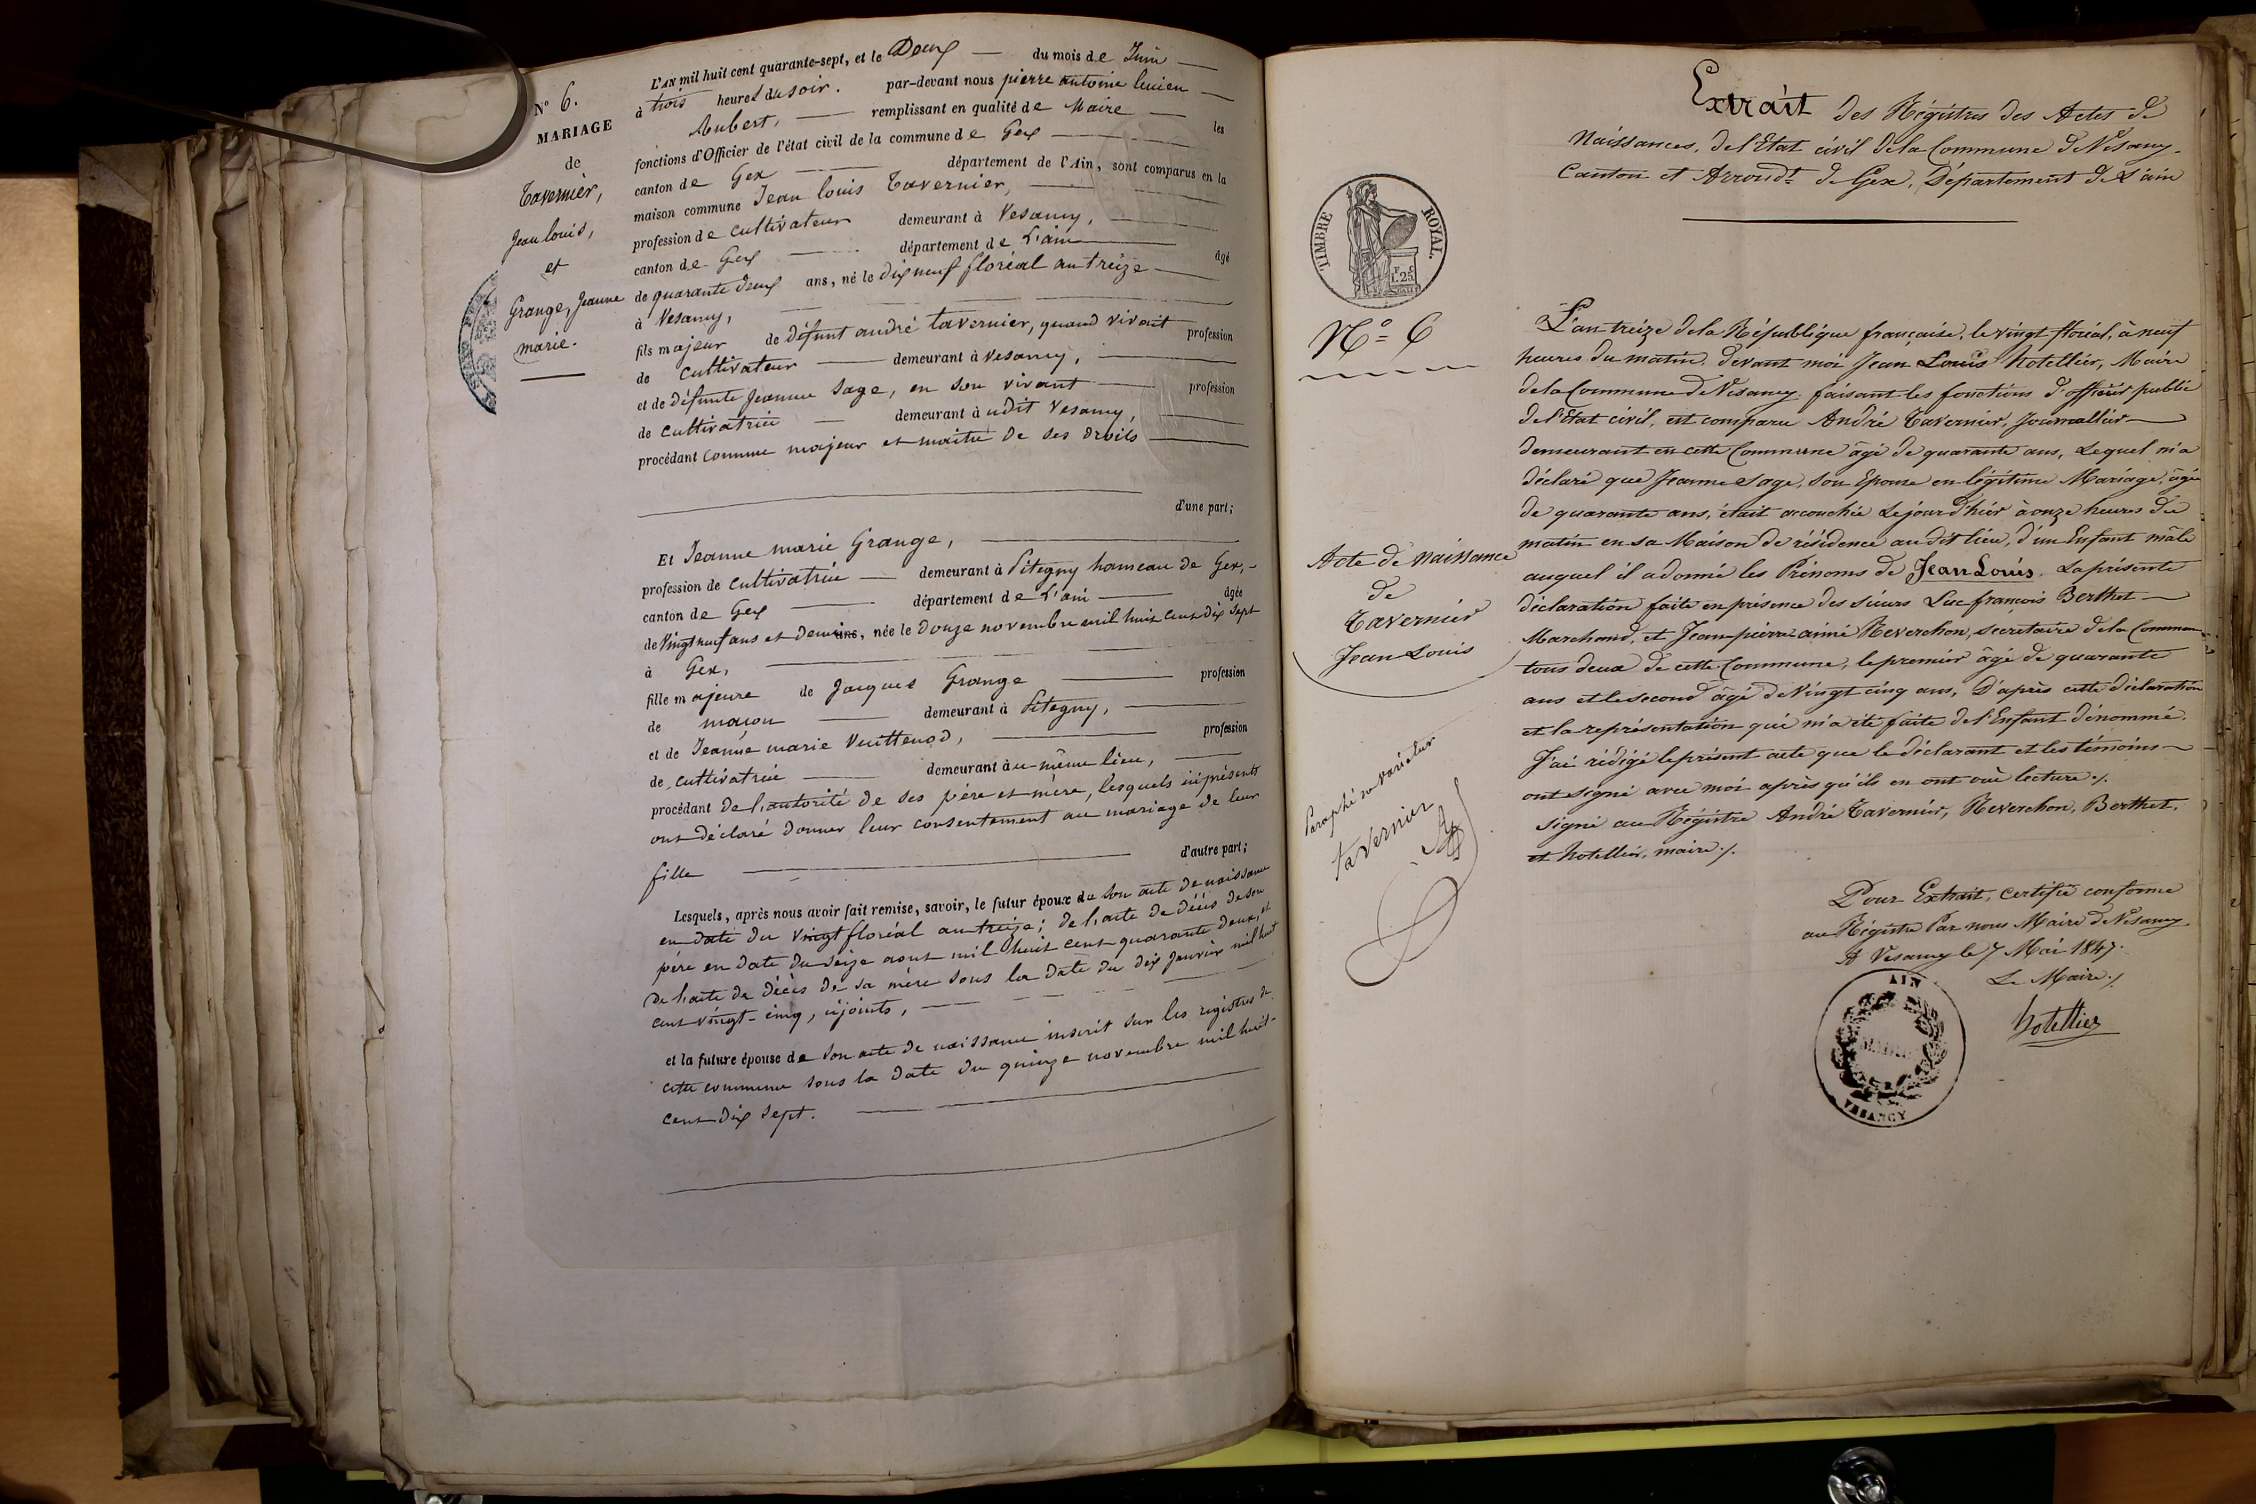 N° 6.
MARIAGE
de
Tavernier,
Jean louis,
et
Grange, Jeanne
marie.
L'AN mil huit cent quarante-sept, et le Deux du mois de Juin
à trois heures du soir. par-devant nous pierre antoine lucien
Aubert, remplissant en qualité de Maire les
fonctions d'Officier de l'état civil de la commune de Gex
canton de Gex département de l'Ain, sont comparus en la
maison commune Jean louis Tavernier,
profession de cultivateur demeurant à Vesancy,
canton de Gex département de L'ain âgé
de quarante deux ans, né le dix neuf floréal an treize
à Vesancy,
fils majeur de défunt andré tavernier, quand vivait profession
de cultivateur demeurant à Vesancy,
et de défunte Jeanne Sage, en son vivant profession
de cultivatrice demeurant à udit Vesancy,
procédant comme majeur et maitre de ses droits
d'une part;
Et Jeanne marie Grange,
profession de cultivatrice demeurant à Pitegny hameau de Gex,
canton de Gex département de L'ain âgée
de Vingt neuf ans et demi ans, née le douze novembre mil huit cent dix sept
à Gex,
fille majeure de Jacques Grange profession
de maçon demeurant à Pitegny,
et de Jeanne marie Vuittenod, profession
de cultivatrice demeurant à u même lieu,
procédant de l'autorité de ses père et mère, lesquels ici présents
ont déclaré donner leur consentement au mariage de leur
fille d'autre part;
Lesquels, après nous avoir fait remise, savoir, le futur époux de son acte de naissance
en date du vingt floréal an treize; de l'acte de décès de son
père en date du seize aout mil huit cent quarante deux, et
de l'acte de décès de sa mère sous la date du dix Janvier mil huit
cent vingt-cinq, cijoints,
et la future épouse de son acte de naissance inscrit sur les registres de
cette commune sous la date du quinze novembre mil huit-
cent dix sept.
Extrait des Régistres des Actes de
Naissances, de l'Etat civil de la Commune de Vesancy.
Canton et Arrondt. de Gex, Département de L'ain
TIMBRE ROYAL.
N° 6
Acte de Naissance
de
Tavernier
Jean Louis
Paraphé ne varietur
tavernier
L'an treize de la République française, le vingt floréal, à neuf
heures du matin, devant moi Jean Louis hotellier, Maire
de la Commune de Vesancy faisant les fonctions d'officier public
de l'Etat civil, est comparu André Tavernier, Journallier
demeurant en cette Commune âgé de quarante ans, Lequel m'a
déclaré que Jeanne Sage, son Epouse en légitime Mariage, âgée
de quarante ans, était accouchée Le jour d'hier à onze heures du
matin en sa Maison de résidence au dit lieu, d'un Enfant mâle
auquel il a donné les Prénoms de Jean Louis. La présente
déclaration faite en présence des sieurs Luc françois Berthet
Marchand, et Jean-pierre aimé Reverchon, secretaire de la Commune
tous deux de cette Commune, le premier âgé de quarante
ans et le second âgé de Vingt cinq ans, D'après cette déclaration
et la représentation qui m'a été faite de l'Enfant dénommé.
J'ai rédigé le présent acte que le déclarant et les témoins
ont signé avec moi après qu'ils en ont ouï lecture./.
Signé au Régistre André Tavernier, Reverchon, Berthet,
et hotellier, maire./.
Pour Extrait, Certifié conforme
au Régistre Par nous Maire de Vesancy
A Vesancy le 7 Mai 1847.
Le Maire./.
hotellier
AIN
MAIRIE
VESANCY